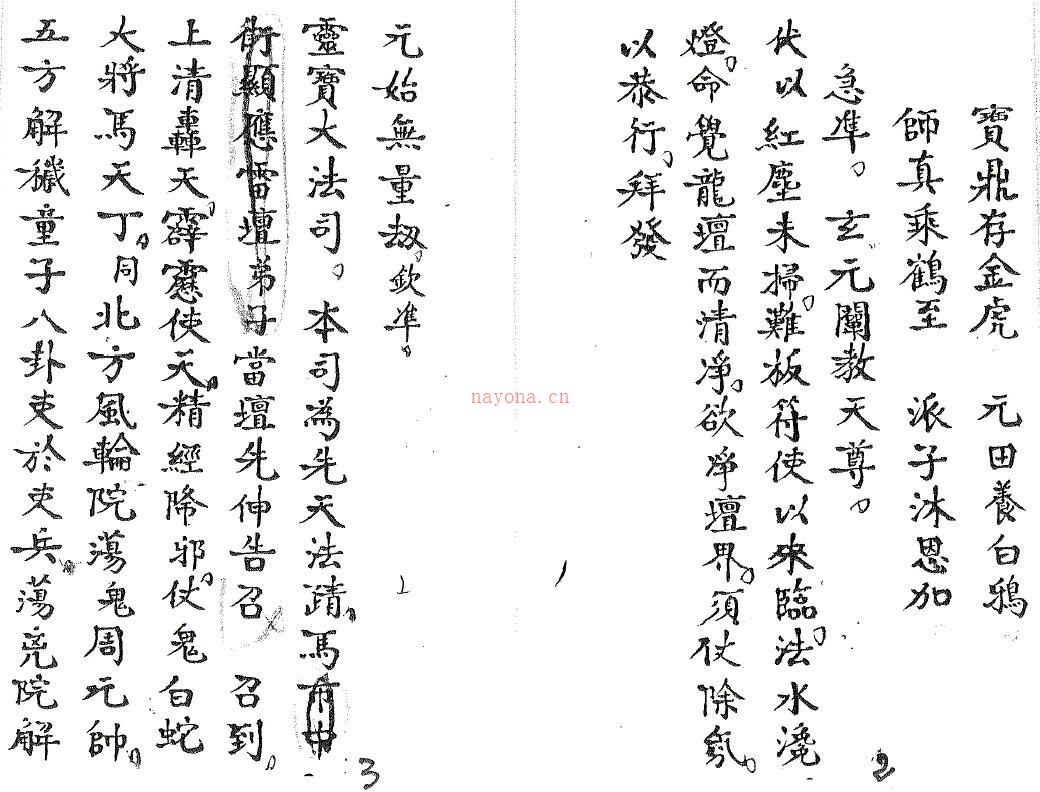 寶鼎存金虎 元田養白鴉
師真乘鶴至 派子沐恩加
急準。玄元闡教天尊。
伏以紅塵未掃。難板符使以來臨。法水澆
燈。命覺龍壇而清凈。欲凈壇界。須仗除氛。
以恭行。拜發
2
元始無量劫。欽準。
靈寶大法司。本司為先天法蹟。馬市中
街顯應雷壇弟子當壇先伸告召 召到。
上清轟天。霹靂使天。精經降邪。仗鬼白蛇
大將馬天丁。同北方風輪院蕩鬼周元帥。
五方解穢童子八卦吏於吏兵。蕩兇院解
3
nayona.cn